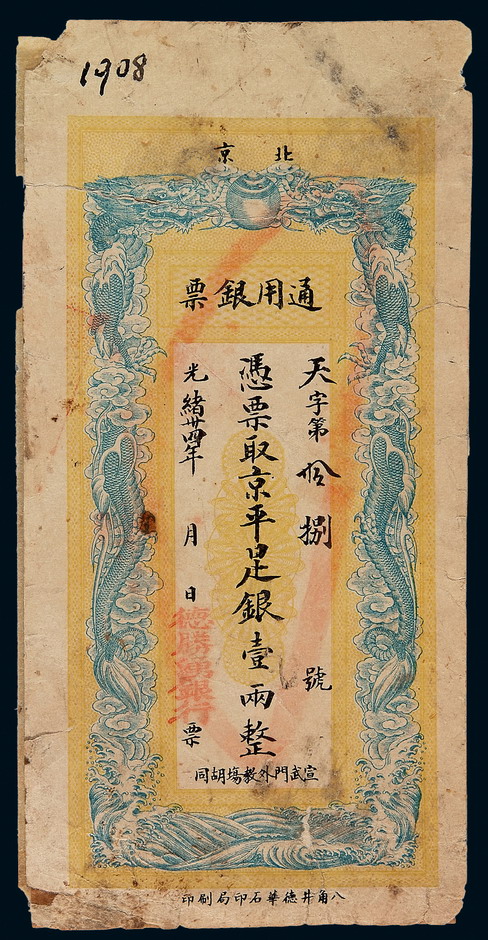 1908
北京
通用銀票
天字第拾捌號
憑票取京平足銀壹兩整
光緒卅四年 月 日 票
德勝銀行
宣武門外教場胡同
八角井德華石印局刷印